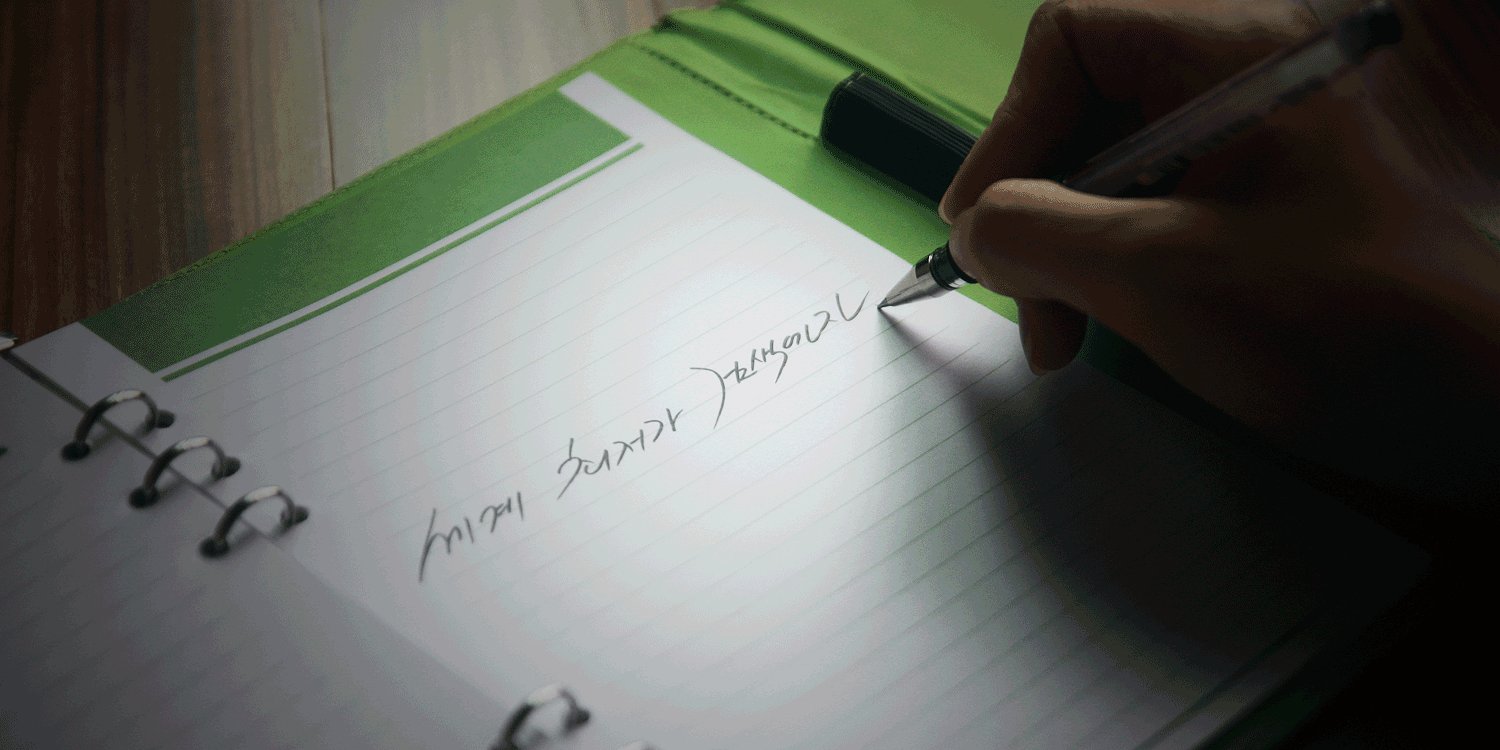 세계 최저가 검색엔진